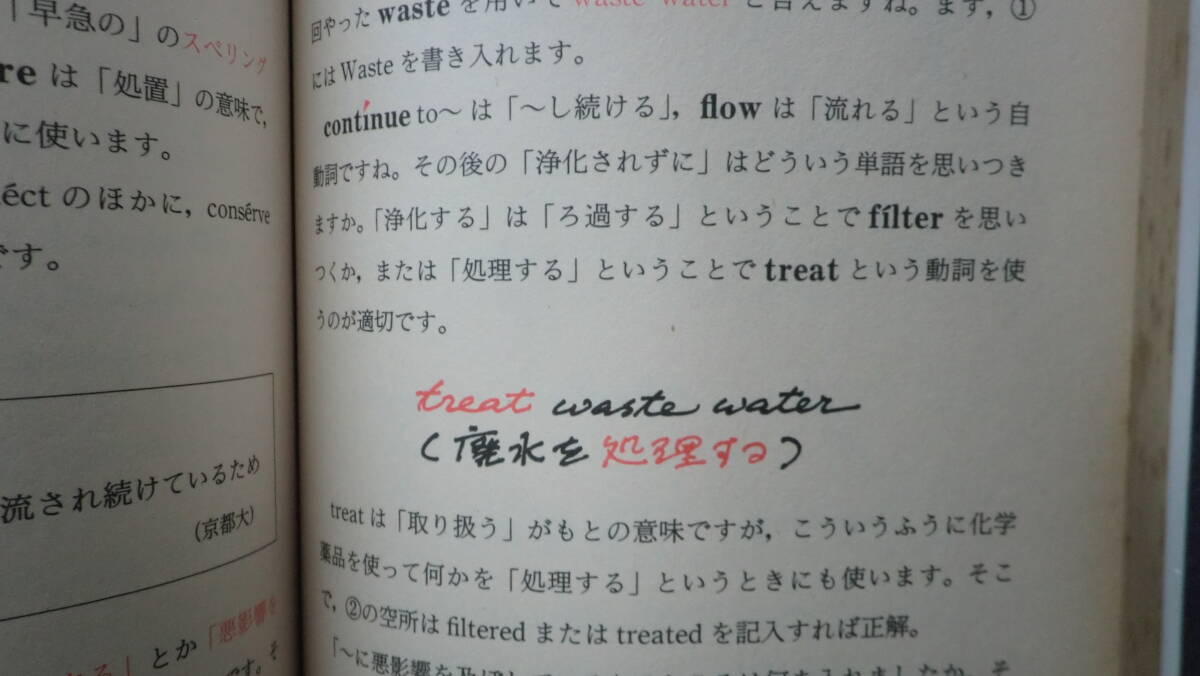 「早急の」のスペリング
re は「処置」の意味で,
に使います。
éct のほかに, consérve
です。
流され続けているため
(京都大)
とか「悪影響を
です。そ
回やった waste を用いて waste water と言えますね。まず, ①
にはWaste を書き入れます。
contínue to〜 は「〜し続ける」, flow は「流れる」という自
動詞ですね。その後の「浄化されずに」はどういう単語を思いつき
ますか。「浄化する」は「ろ過する」ということで fílter を思い
つくか, または「処理する」ということで treat という動詞を使
うのが適切です。
treat waste water
(廃水を処理する)
treat は「取り扱う」がもとの意味ですが, こういうふうに化学
薬品を使って何かを「処理する」というときにも使います。そこ
で, ②の空所は filtered または treated を記入すれば正解。
「〜に悪影響を及ぼして